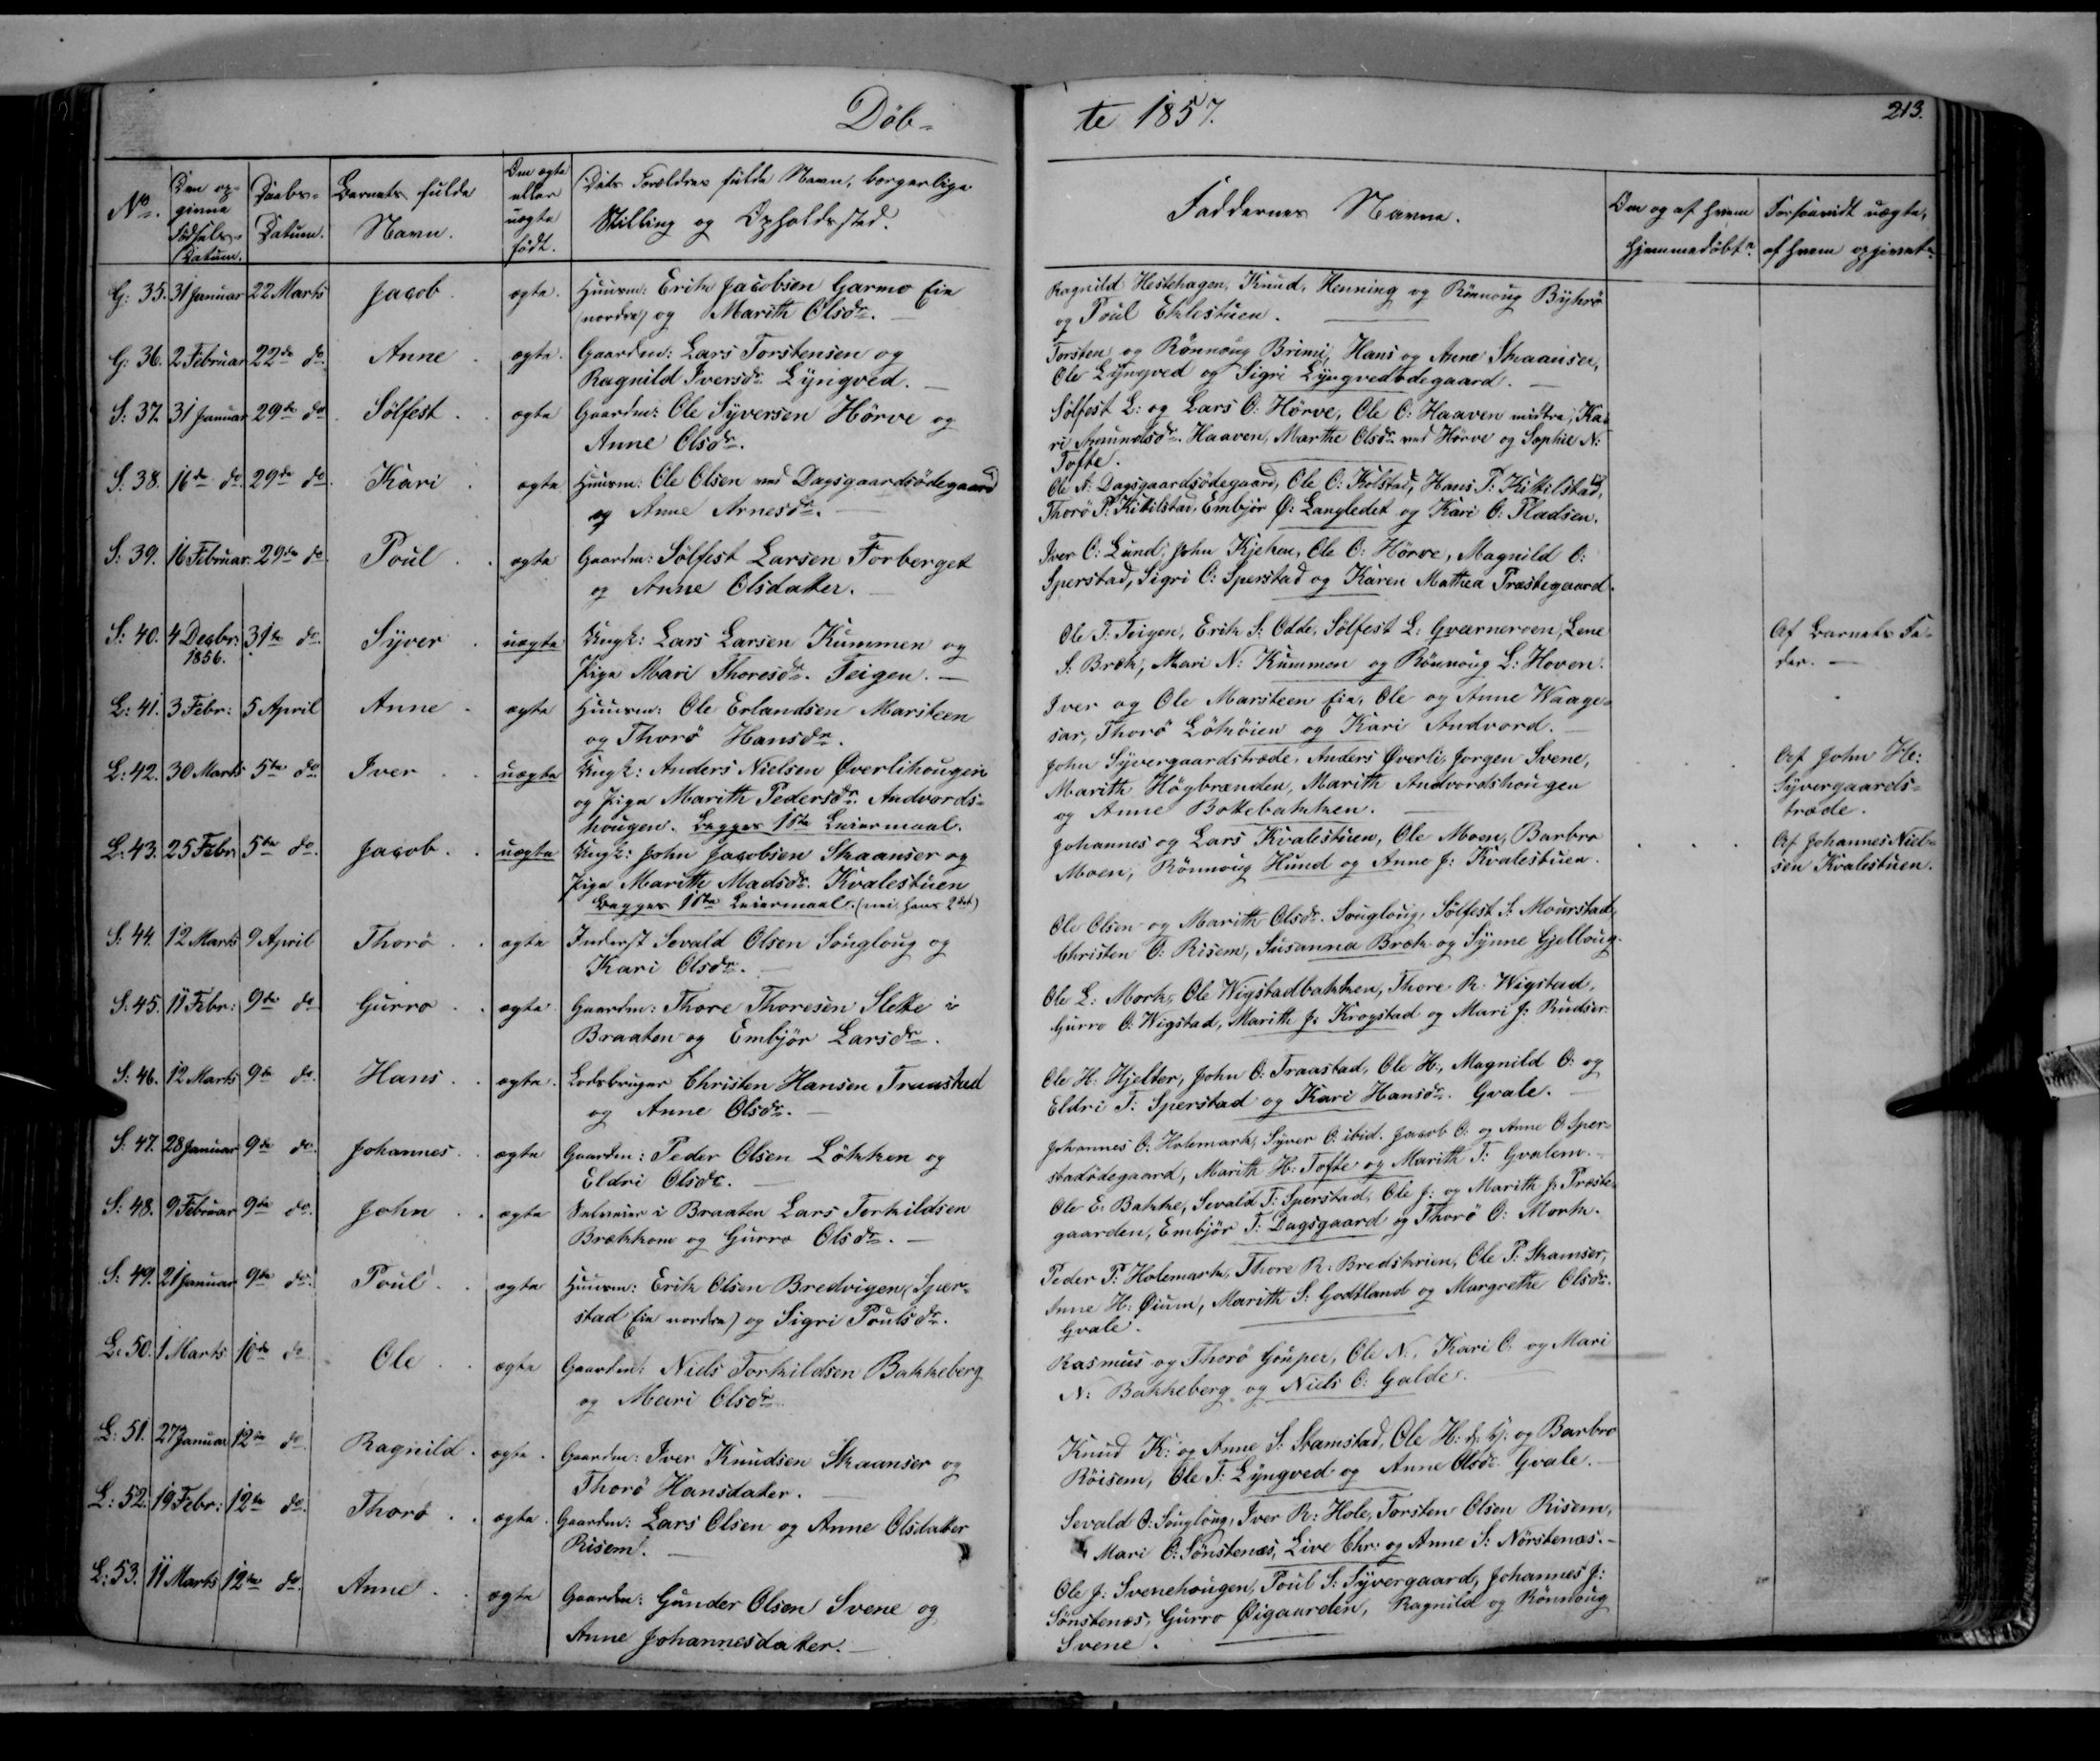 Döb-
te 1857.
213.
No.
Den op-
givne
Fødsels-
Datum.
Daabs-
Datum.
Barnets fulde
Navn.
Om ægte
eller
uægte
født.
Dets Forældres fulde Navn, borgerlige
Stilling og Opholdssted.
Faddernes Navne.
Om og af hvem
Hjemmedöbt.
Forsaavidt uægte,
af hvem opgivet.
G: 35. 31 Januar 22 Marts Jacob. ægte. Huusm: Erik Jacobsen Garmo Eie
(nordre) og Marith Olsdr. —
Ragnild Hestehagen, Knud, Henning og Rönnoug Byhrö
og Poul Eklestuen.
G: 36. 2 Februar 22de do. Anne. ægte. Gaardm: Lars Torstensen og
Ragnild Iversdr. Lyngved. —
Torsten og Rönnoug Brimi, Hans og Anne Skaanser,
Ole Lyngved og Sigri Lyngvedödegaard. —
S: 37. 31 Januar 29de do. Sölfest. ægte Gaardm: Ole Syversen Hörve og
Anne Olsdr.
Sölfest L: og Lars O: Hörve, Ole O: Haaven midtre, Ka-
ri Amundsdr. Haaven, Marthe Olsdr. ved Hörve og Sophie N:
Tofte.
S: 38. 16de do. 29de do. Kari. ægte Huusm: Ole Olsen ved Dagsgaardsödegaard
og Anne Arnesdr. —
Ole A: Dagsgaardsödegaard, Ole O: Kolstad, Hans P: Kittilstad,
Thorö P: Kittilstad, Embjör Ø: Langledet og Kari O: Pladsen.
S: 39. 16 Februar 29de do. Poul. ægte Gaardm: Sölfest Larsen Forberget
og Anne Olsdatter. —
Iver O: Lund, John Kjeken, Ole O: Hörve, Magnild O:
Sperstad, Sigri O: Sperstad og Karen Mathea Præstegaard.
S: 40. 4 Decbr: 31te do. Syver. uægte Ungk: Lars Larsen Kummen og
1856.
Pige Mari Thoresdr. Teigen. —
Ole T: Teigen, Erik S: Odde, Sölfest L: Gværneroen, Lene
S. Bræk, Mari N: Kummen og Rönnoug L: Hoven.
Af Barnets Fa-
der. —
L: 41. 3 Febr: 5 April Anne. ægte Huusm: Ole Erlandsen Marsteen
og Thorö Hansdr.
Iver og Ole Marsteen Eie, Ole og Anne Waage-
sar, Thorö Lökröien og Kari Andvord. —
L: 42. 30 Marts 5te do Iver. uægte Ungk: Anders Nielsen Øverlihougen
og Pige Marith Pedersdr. Andvords-
hougen. Begges 1ste Leiermaal.
John Syvergaardstræde, Anders Øverli, Jorgen Svene,
Marith Högbrænden, Marith Andvordshougen
og Anne Bottebakken. —
Af John He:
Syvergaards-
træde.
L: 43. 25 Febr. 5te do. Jacob. uægte Ungk: John Jacobsen Skaanser og
Pige Marith Madsdr. Kvalestuen
Begges 1ste Leiermaal. (nei, hans 2det)
Johannes og Lars Kvalestuen, Ole Moen, Barbro
Moen, Rönnoug Hund og Anne J: Kvalestuen.
Af Johannes Niel-
sen Kvalestuen.
S: 44. 12 Marts 9 April Thorö. ægte Inderst Sevald Olsen Sougloug og
Kari Olsdr. —
Ole Olsen og Marith Olsdr. Sougloug, Sölfest S: Mourstad,
Christen O: Risem, Susanna Bræk og Synne Gjelloug.
S: 45. 11 Febr: 9de do Gurro. ægte Gaardm: Thore Thoresen Slette i
Braaten og Embjör Larsdr.
Ole L: Mork, Ole Wigstadbakken, Thore R. Wigstad,
Gurro O: Wigstad, Marith J: Krogstad og Mari J: Rudser.
S: 46. 12 Marts 9de do. Hans. ægte. Lodsbruger Christen Hansen Traastad
og Anne Olsdr. —
Ole H: Hjelter, John O: Traastad, Ole H:, Magnild O: og
Eldri T: Sperstad og Kari Hansdr. Gvale. —
S: 47. 28 Januar 9de do. Johannes. ægte Gaardm: Peder Olsen Lökken og
Eldri Olsdr. —
Johannes O: Holemark, Syver O: ibid. Jacob O: og Anne O: Sper-
stadödegaard, Marith H: Tofte og Marith T: Gvalem.
S: 48. 9 Februar 9de do. John. ægte Selveier i Braaten Lars Torkildsen
Brækkom og Gurro Olsdr. —
Ole E: Bakke, Sevald T: Sperstad, Ole J: og Marith J: Præste-
gaarden, Embjör T: Dagsgaard og Thorö O: Mork.
S: 49. 21 Januar 9de do. Poul. ægte Huusm: Erik Olsen Bredvigen (Sper-
stad Eie nordre) og Sigri Poulsdr.
Peder P: Holemark, Thore R: Bredskrien, Ole P: Skamser,
Anne H: Øium, Marith S: Godtland og Margrethe Olsdr.
Gvale.
L: 50. 1 Marts 10de do Ole. ægte Gaardm: Niels Torkildsen Bakkeberg
og Mari Olsdr.
Rasmus og Thorö Gouper, Ole N:, Kari O: og Mari
N: Bakkeberg og Niels O: Galde.
L: 51. 27 Januar 12te do. Ragnild. ægte. Gaardm: Iver Knudsen Skaanser og
Thorö Hansdatter. —
Knud K: og Anne S: Stamstad, Ole H: d: y: og Barbro
Röisem, Ole T: Lyngved og Anne Olsdr. Gvale. —
L: 52. 19 Febr: 12te do. Thorö. ægte. Gaardm: Lars Olsen og Anne Olsdatter
Risem. —
Sevald O: Sougloug, Iver R: Hole, Torsten Olsen Risem,
Mari O: Sönstenæs, Live Chr: og Anne S: Nörstenæs. —
L: 53. 11 Marts 12te do. Anne. ægte Gaardm: Gunder Olsen Svene og
Anne Johannesdatter. —
Ole J: Svenehougen, Poul S: Syvergaard, Johannes J:
Sönstenæs, Gurro Øigaarden, Ragnild og Rönnoug
Svene.